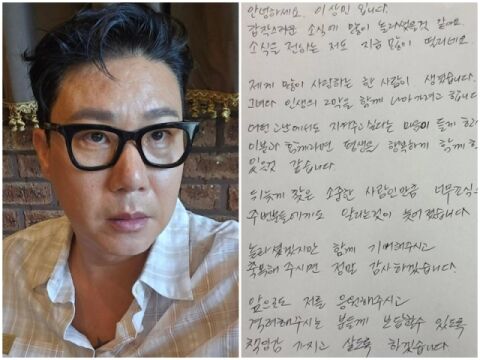 안녕하세요. 이상민 입니다.
갑작스러운 소식에 많이 놀라셨을것 같아요.
소식을 전하는 저도 지금 많이 떨리네요.
제게 많이 사랑하는 한 사람이 생겼습니다.
그녀와 인생의 2막을 함께 나아가려고 합니다.
어떤 고난에서도 지켜주고싶다는 마음이 들게 하
이분과 함께라면 평생을 행복하게 함께 할
있을것 같습니다.
뒤늦게 찾은 소중한 사람인만큼 너무조심스
주변분들에게도 알리는것이 늦어졌습니다
놀라셨겠지만 함께 기뻐해주시고
축복해 주시면 정말 감사하겠습니다.
앞으로도 저를 응원해주시고
격려해주시는 분들께 보답할수 있도록
책임감 가지고 살도록 하겠습니다.